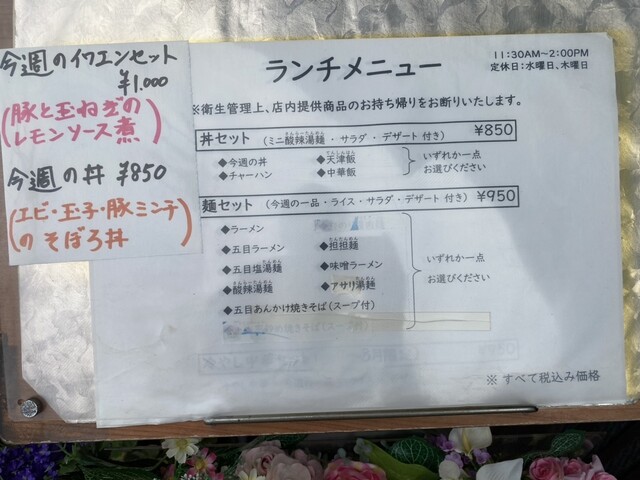 今週のイワエンセット
¥1,000
(豚と玉ねぎの
レモンソース煮)
今週の丼 ¥850
(エビ・玉子・豚ミンチ
のそぼろ丼)
ランチメニュー
11:30AM～2:00PM
定休日：水曜日、木曜日
※衛生管理上、店内提供商品のお持ち帰りをお断りいたします。
丼セット (ミニ酸辣湯麺・サラダ・デザート 付き) ¥850
◆今週の丼 ◆天津飯
◆チャーハン ◆中華飯
いずれか一点
お選びください
麺セット (今週の一品・ライス・サラダ・デザート 付き) ¥950
◆ラーメン
◆五目ラーメン ◆担担麺
◆五目塩湯麺 ◆味噌ラーメン
◆酸辣湯麺 ◆アサリ湯麺
◆五目あんかけ焼きそば(スープ付)
いずれか一点
お選びください
焼きそば(スープ付)
※ すべて税込み価格